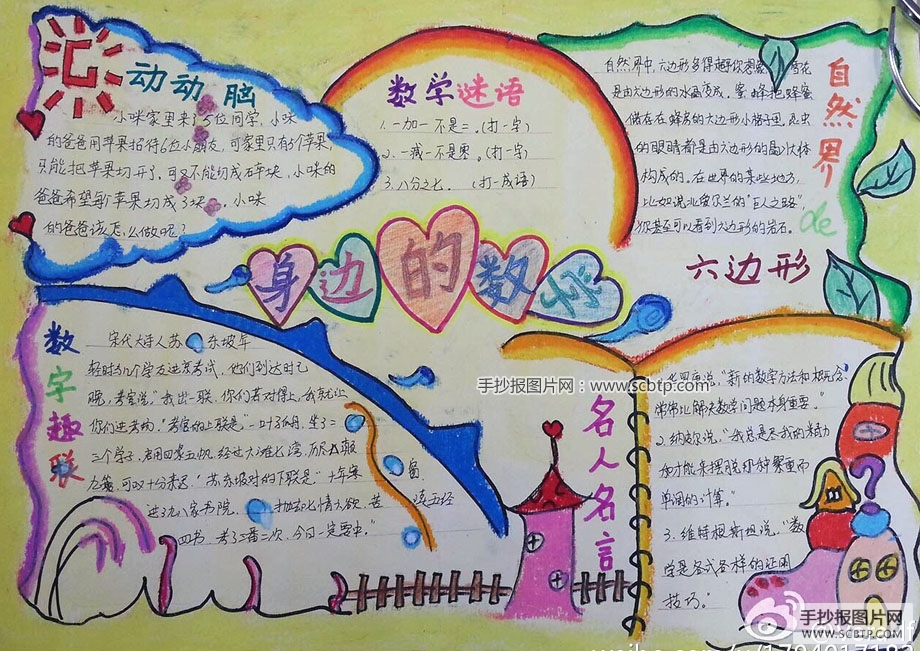 动动脑
小咪家里来了5位同学,小咪
的爸爸用苹果招待6位小朋友,可家里只有5个苹果,
只能把苹果切开了,可又不能切成碎块,小咪的
爸爸希望每个苹果切成3块,小咪
的爸爸该怎么做呢?
数学谜语
1.一加一不是二。(打一字)
2.一减一不是零。(打一字)
3.八分之七.(打一成语)
自然界de
六边形
自然界中,六边形多得
是由六边形的水晶
储存在蜂房的六边形小格子里,昆虫
的眼睛都是由六边形的晶状体
构成的。在世界的某些地方,
比如说北爱尔兰的"巨人之路",
你甚至可以看到六边形的岩石。
身边的数学
手抄报图片网:www.scbtp.com
数字趣联
宋代大诗人苏东坡年
轻时与几个学友进京考试,他们到达时已
晚,考官说:"我出一联,你们若对得上,我就让
你们进考场。"考官的上联是:"一叶孤舟,坐二
三个学子,启用四桨五帆,经过六滩七湾,历尽八颠
九簸,可叹十分来迟。"苏东坡对的下联是:"十年寒窗
进了九八家书院,抛却七情六欲,苦读五经
四书,考了三番二次,今日一定要中。"
名人名言
说,"新的数学方法和概念,
常常比解决数学问题本身重要。"
2.纳皮尔说,"我总是尽我的精力
和才能来摆脱那种繁重而
单调的计算。"
3.维特根斯坦说,"数
学是各式各样的证明
技巧。"
手抄报图片网
WWW.SCBTP.COM